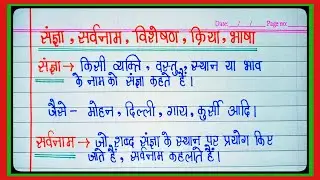 Date: __/__/__ Page no: __
संज्ञा, सर्वनाम, विशेषण, क्रिया, भाषा
संज्ञा → किसी व्यक्ति, वस्तु, स्थान या भाव
के नाम को संज्ञा कहते हैं।
जैसे - मोहन, दिल्ली, गाय, कुर्सी आदि।
सर्वनाम → जो शब्द संज्ञा के स्थान पर प्रयोग किए
जाते हैं, सर्वनाम कहलाते हैं।